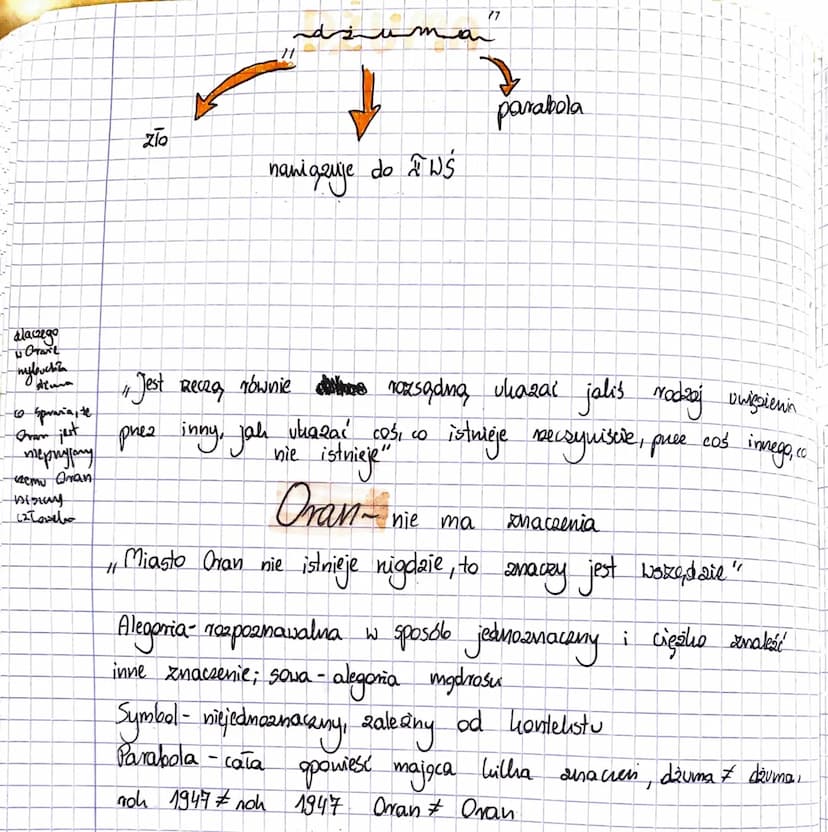 "dżuma"
zło
nawiązuje do IIWŚ
parabola
dlaczego
w Oranie
wybuchła
dżuma
co sprawia, że
Oran jest
nieprzyjazny
czemu Oran
niszczy
człowieka
„Jest rzeczą równie rozsądną ukazać jakiś rodzaj uwięzienia
przez inny, jak ukazać coś, co istnieje rzeczywiście, przez coś innego, co
nie istnieje"
Oran - nie ma znaczenia
„Miasto Oran nie istnieje nigdzie, to znaczy jest wszędzie"
Alegoria - rozpoznawalna w sposób jednoznaczny i ciężko znaleźć
inne znaczenie; sowa - alegoria mądrości
Symbol - niejednoznaczny, zależny od kontekstu
Parabola - cała opowieść mająca kilka znaczeń, dżuma ≠ dżuma,
rok 1947 ≠ rok 1947 Oran ≠ Oran